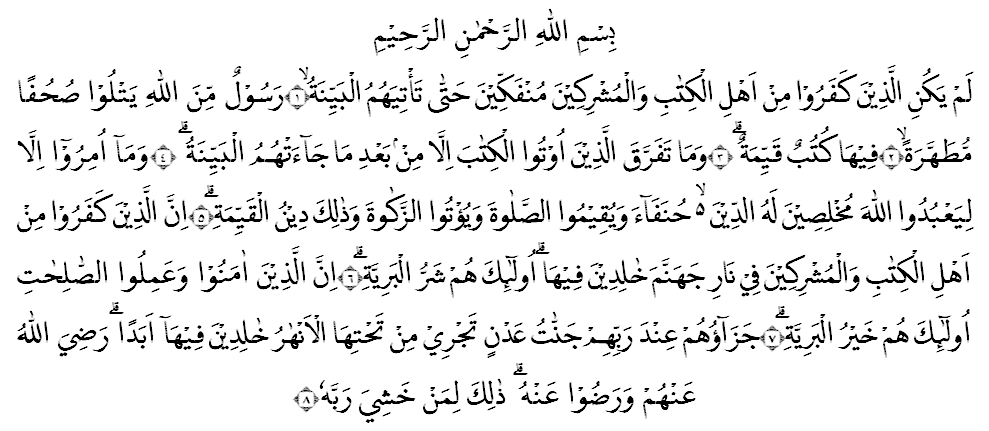 بِسْمِ اللهِ الرَّحْمٰنِ الرَّحِيْمِ
لَمْ يَكُنِ الَّذِيْنَ كَفَرُوْا مِنْ اَهْلِ الْكِتٰبِ وَالْمُشْرِكِيْنَ مُنْفَكِّيْنَ حَتّٰى تَأْتِيَهُمُ الْبَيِّنَةُۙ ١ رَسُوْلٌ مِّنَ اللهِ يَتْلُوْا صُحُفًا
مُّطَهَّرَةًۙ ٢ فِيْهَا كُتُبٌ قَيِّمَةٌۗ ٣ وَمَا تَفَرَّقَ الَّذِيْنَ اُوْتُوا الْكِتٰبَ اِلَّا مِنْۢ بَعْدِ مَا جَاۤءَتْهُمُ الْبَيِّنَةُۗ ٤ وَمَآ اُمِرُوْٓا اِلَّا
لِيَعْبُدُوا اللهَ مُخْلِصِيْنَ لَهُ الدِّيْنَ ەۙ حُنَفَاۤءَ وَيُقِيْمُوا الصَّلٰوةَ وَيُؤْتُوا الزَّكٰوةَ وَذٰلِكَ دِيْنُ الْقَيِّمَةِۗ ٥ اِنَّ الَّذِيْنَ كَفَرُوْا مِنْ
اَهْلِ الْكِتٰبِ وَالْمُشْرِكِيْنَ فِيْ نَارِ جَهَنَّمَ خٰلِدِيْنَ فِيْهَاۗ اُولٰۤىِٕكَ هُمْ شَرُّ الْبَرِيَّةِۗ ٦ اِنَّ الَّذِيْنَ اٰمَنُوْا وَعَمِلُوا الصّٰلِحٰتِ
اُولٰۤىِٕكَ هُمْ خَيْرُ الْبَرِيَّةِۗ ٧ جَزَاۤؤُهُمْ عِنْدَ رَبِّهِمْ جَنّٰتُ عَدْنٍ تَجْرِيْ مِنْ تَحْتِهَا الْاَنْهٰرُ خٰلِدِيْنَ فِيْهَآ اَبَدًاۗ رَضِيَ اللهُ
عَنْهُمْ وَرَضُوْا عَنْهُۗ ذٰلِكَ لِمَنْ خَشِيَ رَبَّهٗ ٨